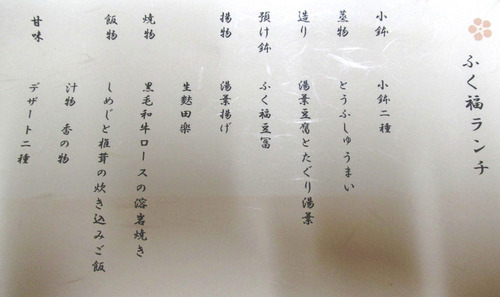 ふく福ランチ
小鉢 小鉢二種
蒸物 とうふしゅうまい
造り 湯葉豆腐とたぐり湯葉
預け鉢 ふく福豆冨
揚物 湯葉揚げ
生麩田楽
焼物 黒毛和牛ロースの溶岩焼き
飯物 しめじと椎茸の炊き込みご飯
汁物 香の物
甘味 デザート二種